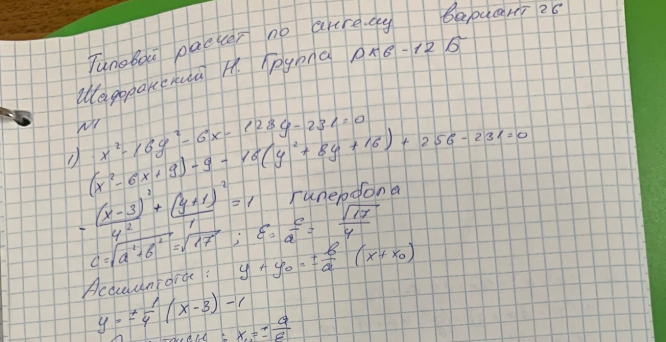 Типовой расчет по ангему вариант 26
Шафоранский Н. Группа РК6-12Б
№1
1) x² - 16y² - 6x - 128y - 231 = 0
(x² - 6x + 9) - 9 - 16(y² + 8y + 16) + 256 - 231 = 0
- (x-3)²/4² + (y+1)²/1 = 1 гипербола
c = √(a² + b²) = √17 ; ε = c/a = √17/4
Ассимптоты: y + y₀ = ± b/a (x + x₀)
y = ± 1/4 (x - 3) - 1
: x = ± a/ε